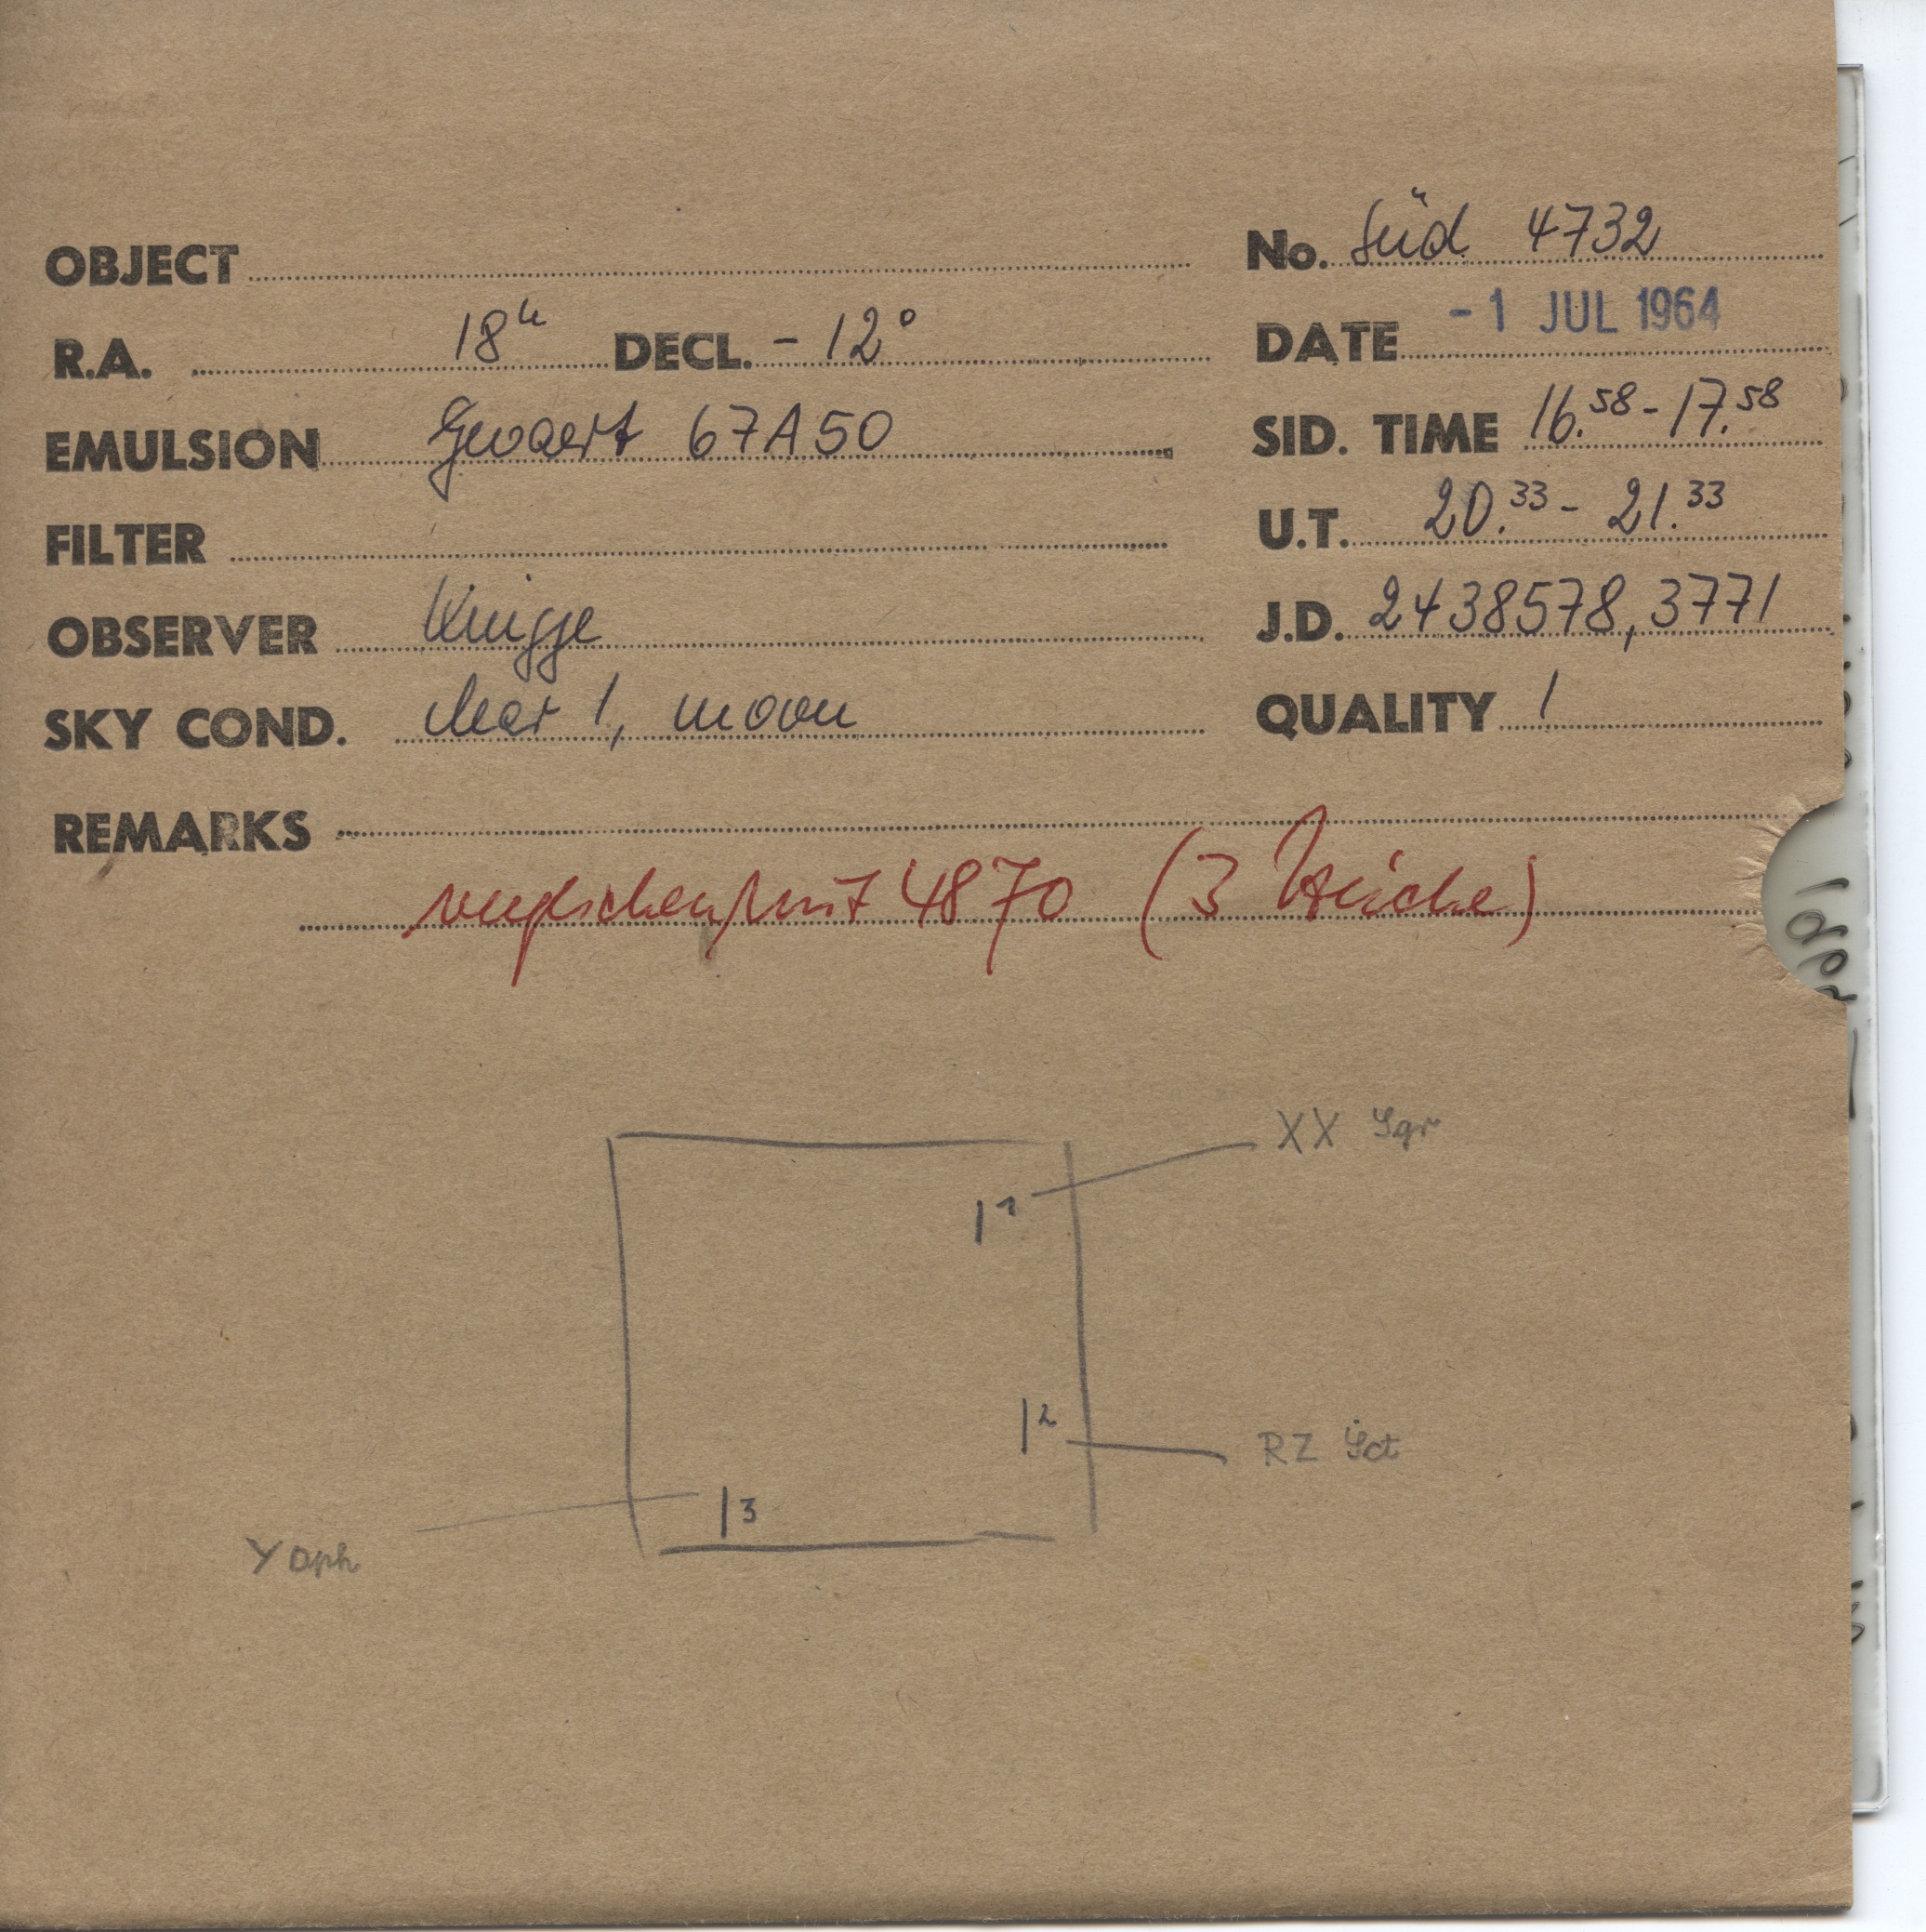 OBJECT
No. Süd 4732
R.A. 18h DECL. - 12°
DATE -1 JUL 1964
EMULSION Gevaert 67A50
SID. TIME 16.58 - 17.58
FILTER
U.T. 20.33 - 21.33
OBSERVER Knigge
J.D. 2438578,3771
SKY COND. clear 1, moon
QUALITY 1
REMARKS
verglichen mit 4870 (3 Striche)
XX Sgr
1
2
RZ Sct
3
Y Oph